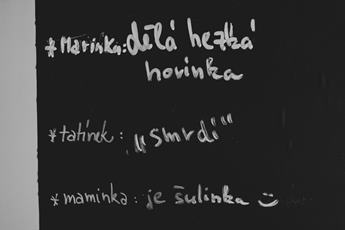 *Marinka: dělá hezká
hovinka
*tatínek: „smrdí"
*maminka: je šulinka